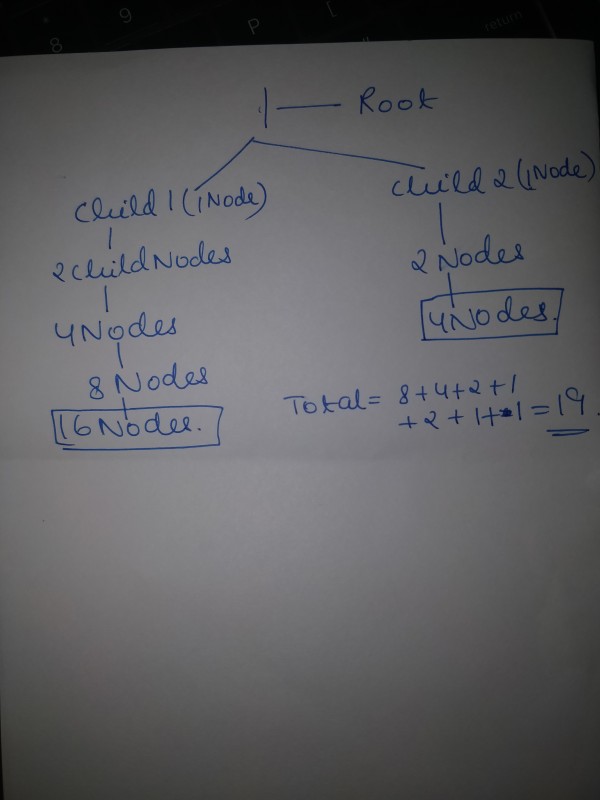 * 9 [
8 P " return
1 — Root
Child 1 (1Node)
Child 2 (1Node)
2 Child Nodes
2 Nodes
4 Nodes
4 Nodes.
8 Nodes
16 Nodes.
Total = 8+4+2+1
+2+1+1 = 19